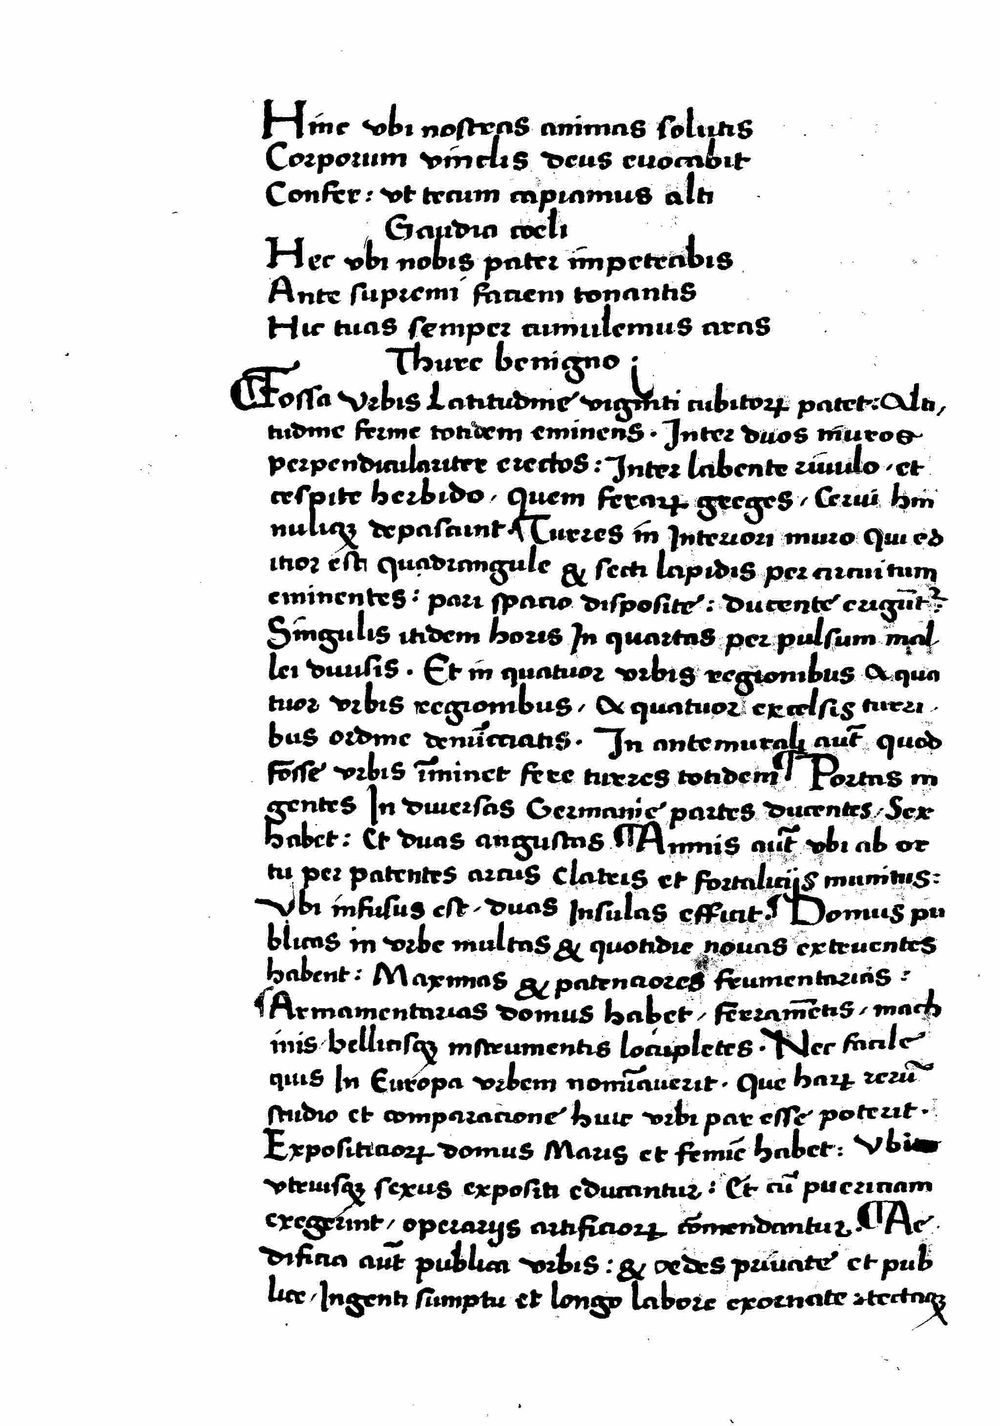 Hinc vbi nostras animas solutis
Corporum vinclis deus euocabit
Confer: vt tecum capiamus alti
Gaudia coeli
Hec vbi nobis pater impetrabis
Ante supremi faciem tonantis
Hic tuas semper cumulemus aras
Thure benigno ;
¶Fossa Vrbis Latitudine viginti cubitoꝝ patet: Alti,
tudine ferme totidem eminens. Inter duos muros
perpendiculariter erectos: Inter labente riuulo, et
cespite herbido, quem feraꝝ greges, Cerui hin
nuliqꝫ depascunt ¶Turres in Interiori muro qui ed
itior est quadrangule & secti lapidis per circuitum
eminentes: pari spacio disposite: ducente erigūtᷣ:
Singulis itidem horis In quartas per pulsum mal
lei diuisis. Et in quatuor vrbis regionibus & qua
tuor vrbis regionibus, & quatuor excelsis turri,
bus ordine denūcciatis. In antemurali aut̄ quod
fosse vrbis īminet fere turres totidem ¶ Portas in
gentes In diuersas Germanie partes ducentes, Sex
habet: Et duas angustas ¶Amnis aut̄ vbi ab or
tu per patentes arcus Clatris et fortalicijs munitus:
Vbi infusus est, duas Insulas efficit. ¶ Domus pu
blicas in vrbe multas & quotidie nouas extruentes
habent: Maximas & patenciores frumentarias:
¶Armamentarias domus habet, ferramētis, mach
inis bellicisqꝫ instrumentis locupletes. Nec facile
quis In Europa vrbem nomīauerit. Que haꝝ rerū
studio et comparacione huic vrbi par esse poterit.
Expositicioꝝ domus Maris et femiē habet: Vbi
vtriusqꝫ sexus expositi educantur: Et cū puericiam
exegerint, operarijs artificioꝝ cōmendantur. ¶Ae
dificia aut̄ publica vrbis: & aedes priuate et pub
lice, Ingenti sumptu et longo labore exornate, tectaqꝫ